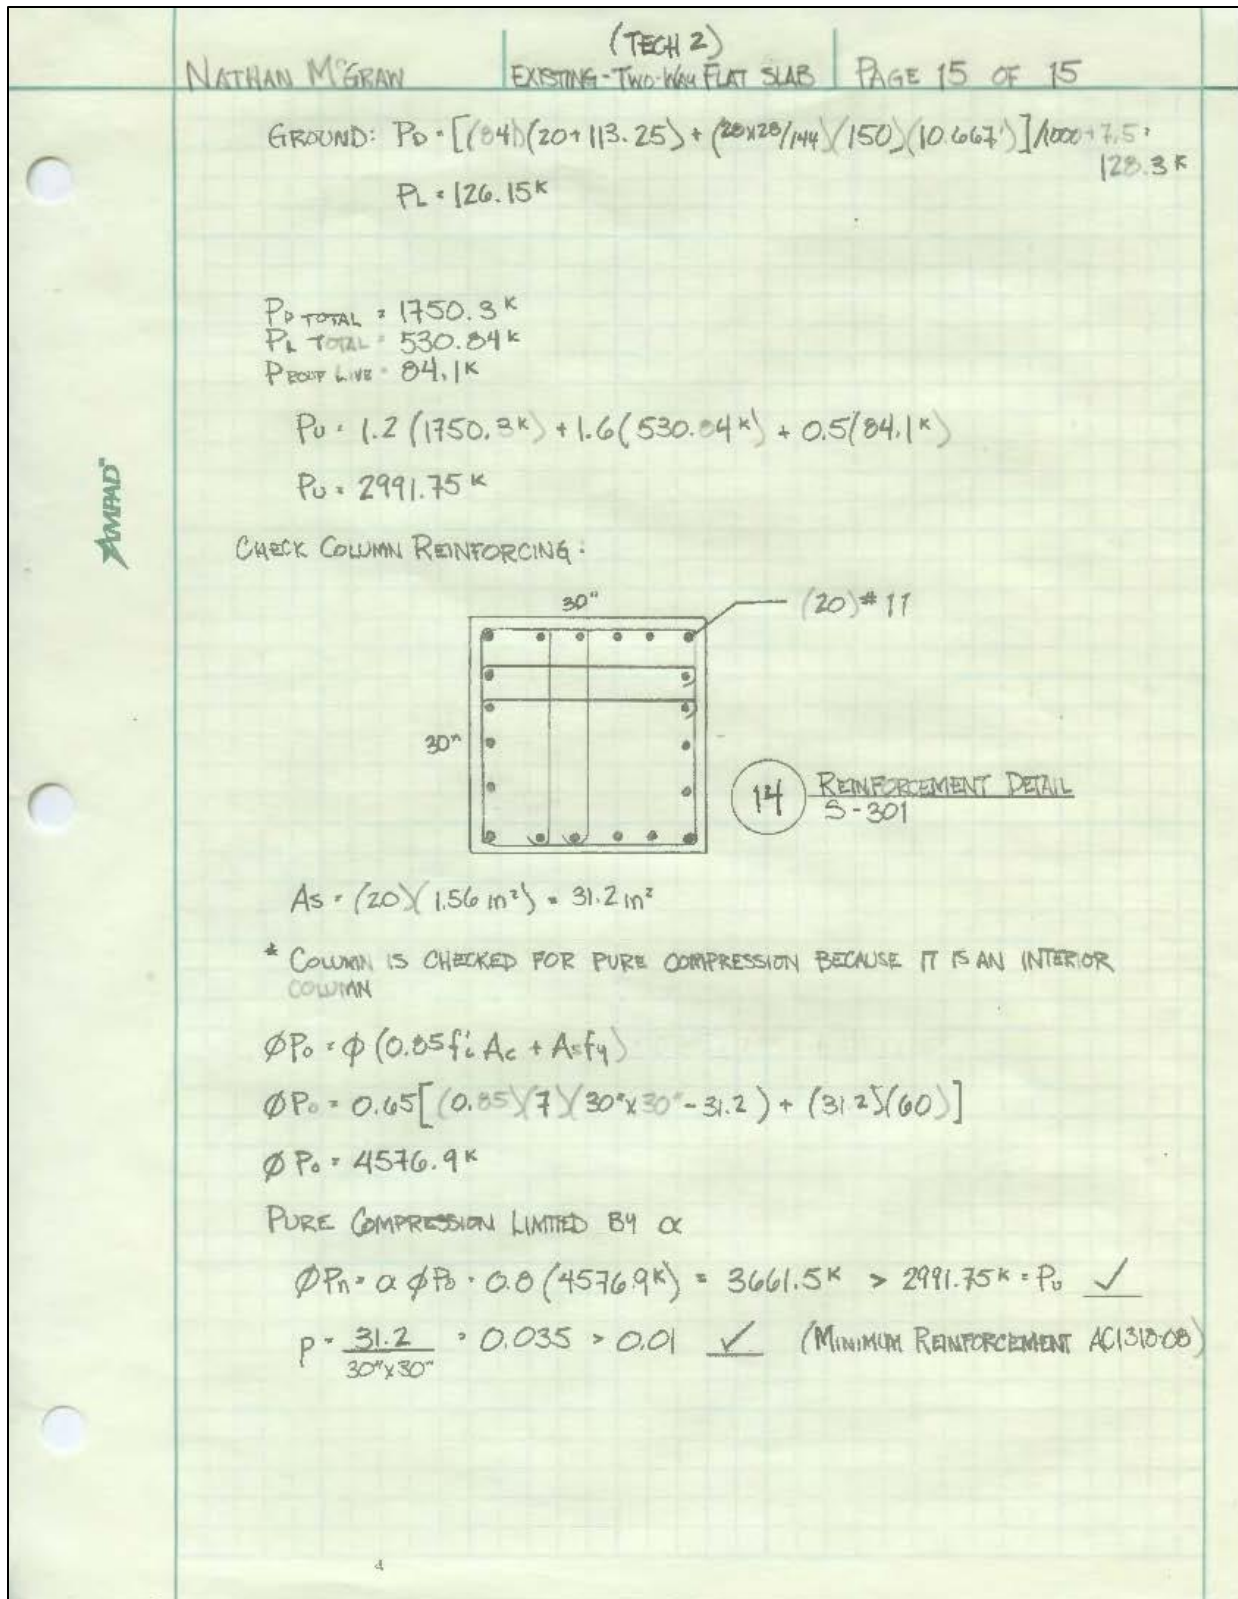 (TECH 2)
NATHAN McGRAW EXISTING-TWO-WAY FLAT SLAB PAGE 15 OF 15
GROUND: PD = [(841)(20+113.25) + (28x28/144)(150)(10.667')]/1000 + 7.5 =
128.3 K
PL = 126.15 K
PD TOTAL = 1750.3 K
PL TOTAL = 530.84 K
P ROOF LIVE = 84.1 K
PU = 1.2 (1750.3 K) + 1.6 (530.84 K) + 0.5 (84.1 K)
PU = 2991.75 K
AMPAD™
CHECK COLUMN REINFORCING:
30"
(20) # 11
30"
14 REINFORCEMENT DETAIL
S-301
As = (20)(1.56 in²) = 31.2 in²
* COLUMN IS CHECKED FOR PURE COMPRESSION BECAUSE IT IS AN INTERIOR
COLUMN
ØPo = φ (0.85 f'c Ac + As fy)
ØPo = 0.65[(0.85)(7)(30"x30" - 31.2) + (31.2)(60)]
ØPo = 4576.9 K
PURE COMPRESSION LIMITED BY α
ØPn = α ØPo = 0.8 (4576.9 K) = 3661.5 K > 2991.75 K = Pu ✓
ρ = 31.2 / 30"x30" = 0.035 > 0.01 ✓ (MINIMUM REINFORCEMENT ACI318-08)
4